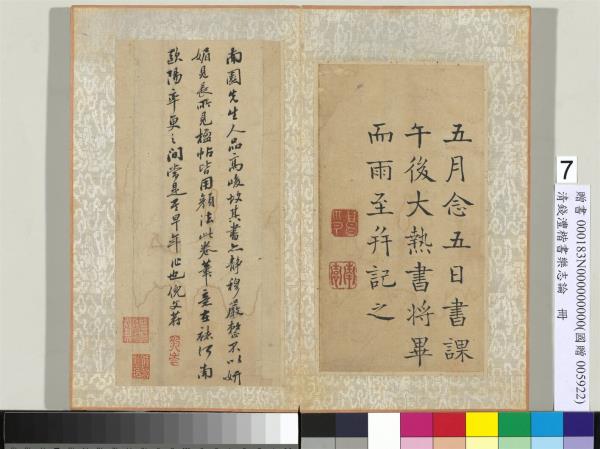 五月念五日書課
午後大熱書將畢
而雨至并記之
南園先生人品高峻故其書亦靜穆嚴整不以妍
媚見長所見楹帖皆用顏法此卷筆意在褚河南
歐陽率更之間當是早年作也倪文蔚
7
贈書 000183N000000000(國贈 005922)
清錢灃楷書樂志論 冊